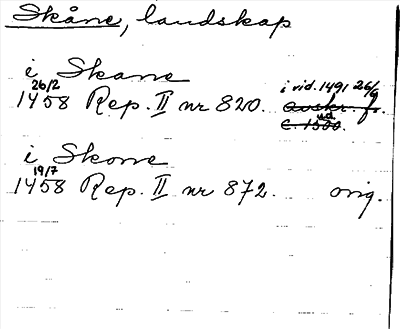 Skåne, landskap
i Skane
26/2 i vid. 1491 26/9
1458 Rep. II nr 820. avskr. fr.
u.d.
c. 1500.
i Skone
19/7
1458 Rep. II nr 872. orig.